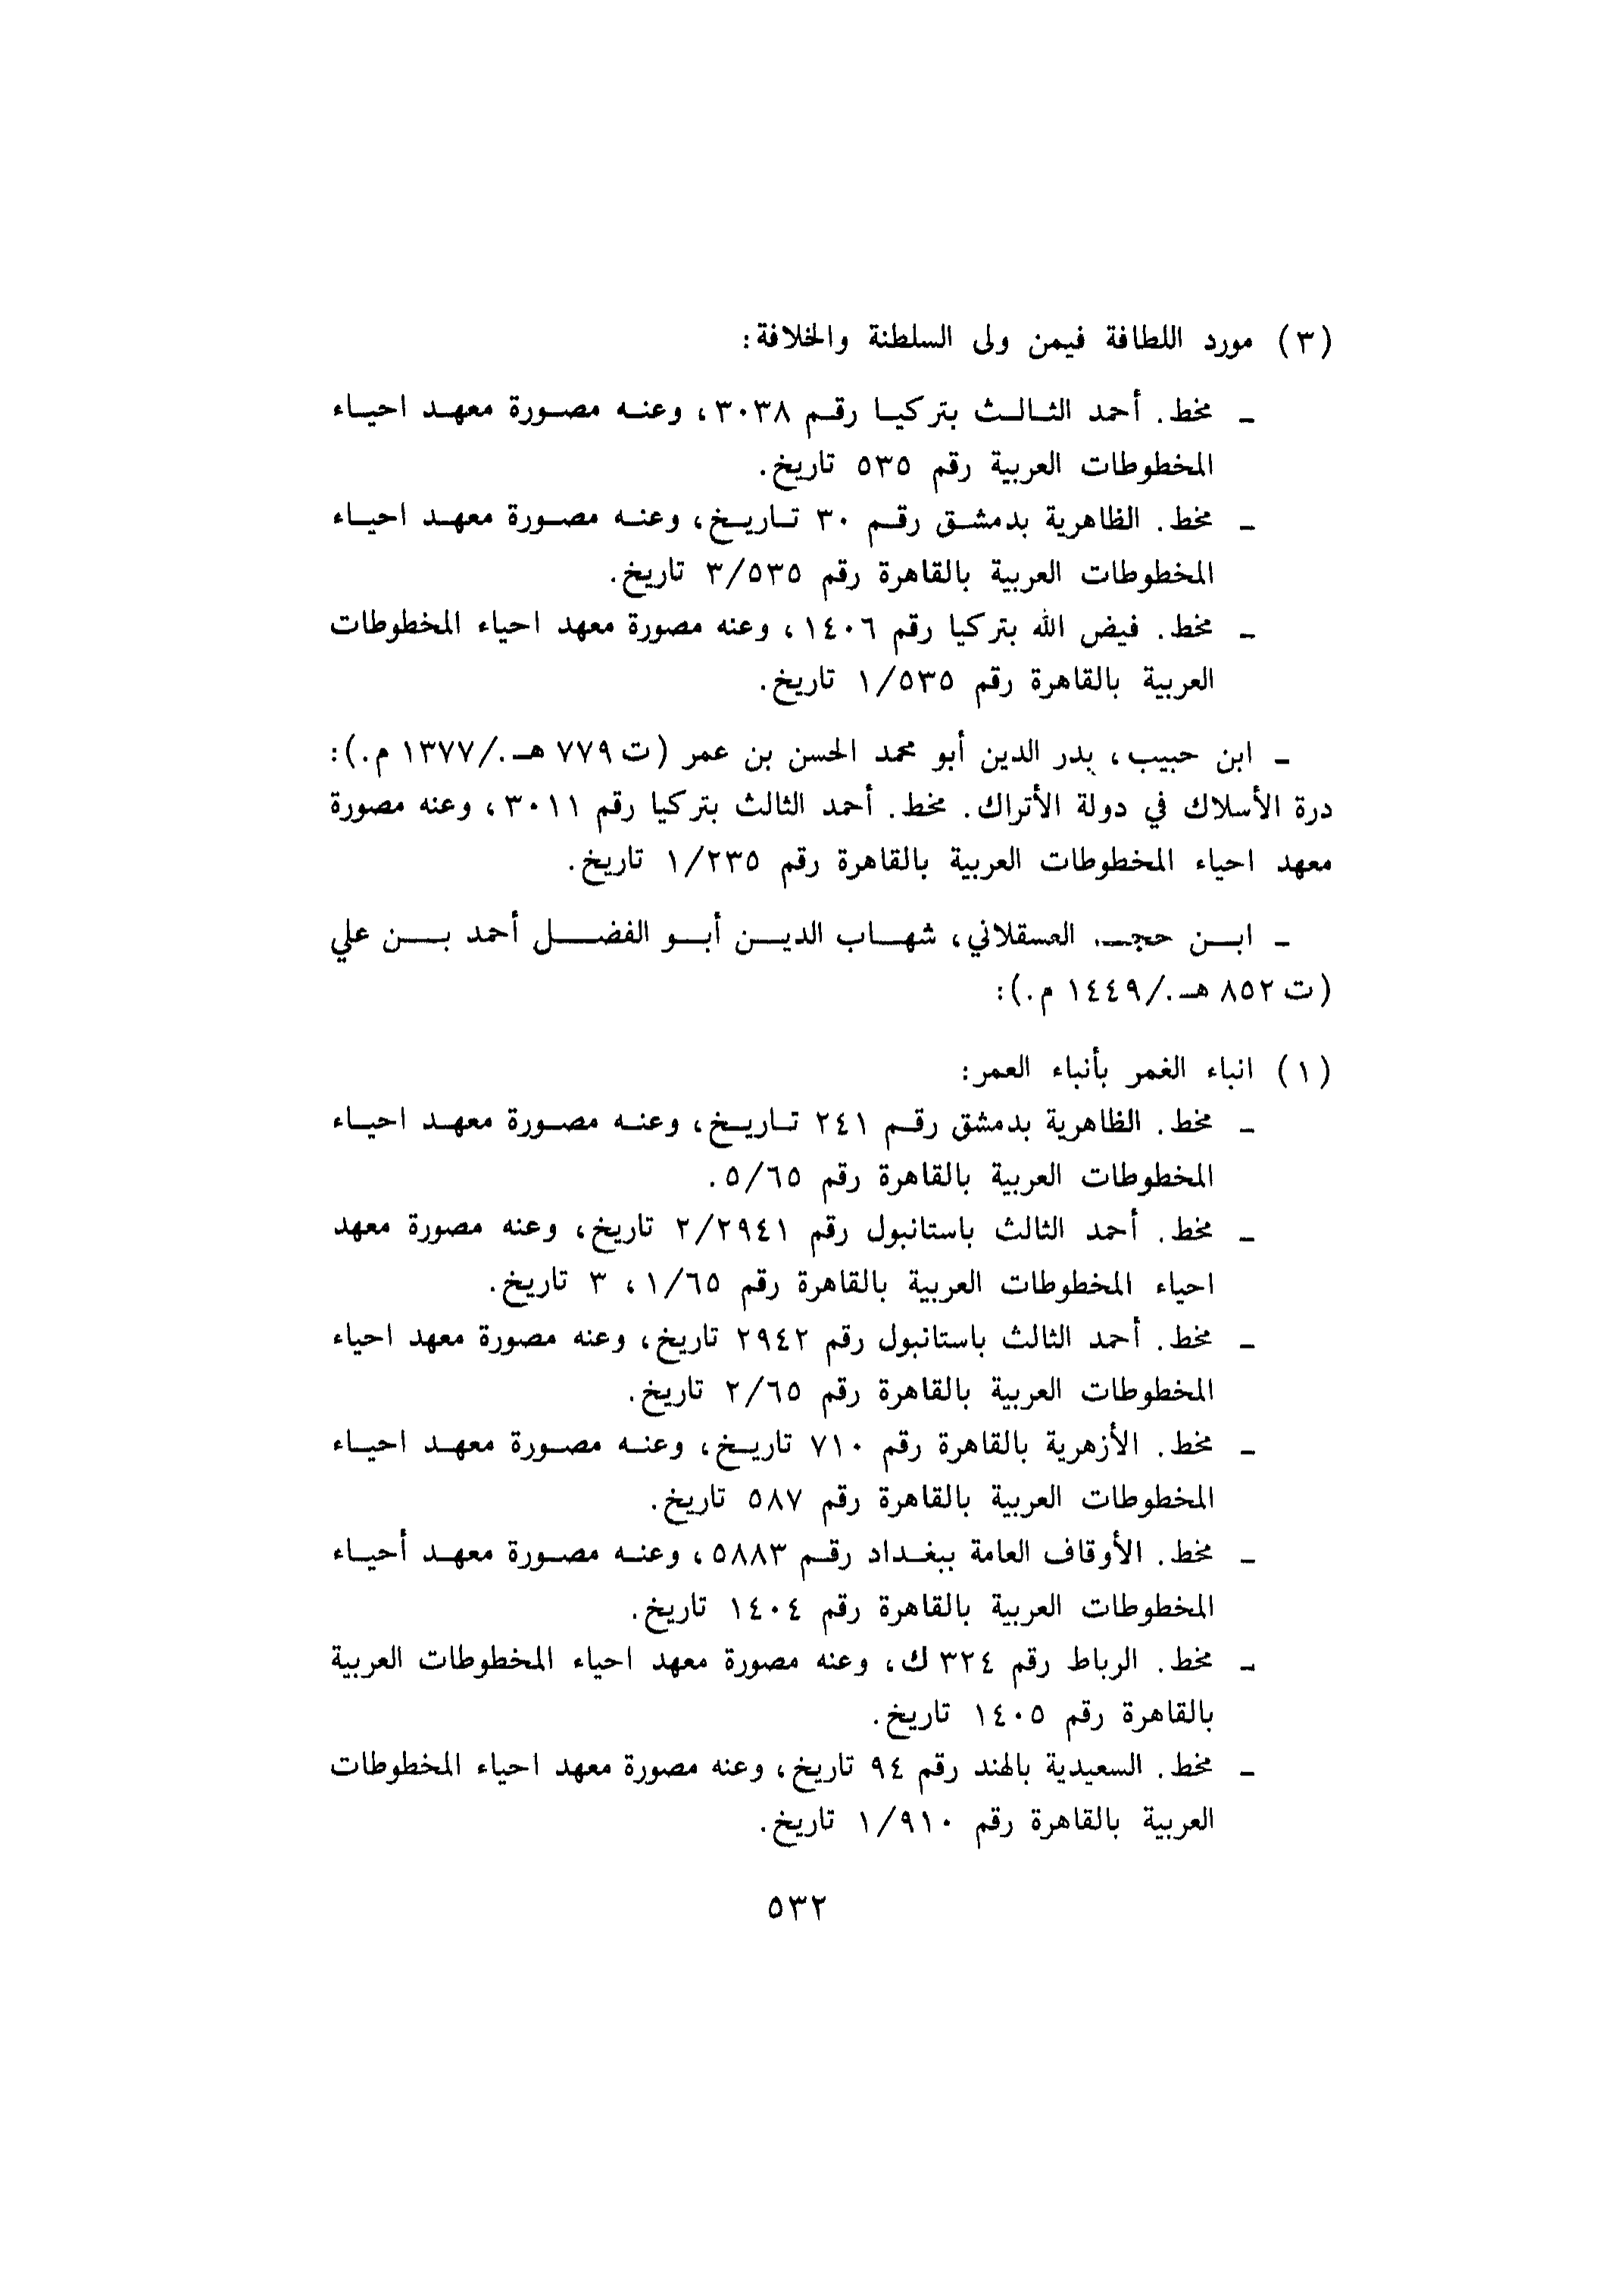 (٣) مورد اللطافة فيمن ولى السلطنة والخلافة:
ـ مخط. أحمد الثالث بتركيا رقم ٣٠٣٨، وعنه مصورة معهد احياء
المخطوطات العربية رقم ٥٣٥ تاريخ.
ـ مخط. الظاهرية بدمشق رقم ٣٠ تاريخ، وعنه مصورة معهد احياء
المخطوطات العربية بالقاهرة رقم ٣/٥٣٥ تاريخ.
ـ مخط. فيض الله بتركيا رقم ١٤٠٦، وعنه مصورة معهد احياء المخطوطات
العربية بالقاهرة رقم ١/٥٣٥ تاريخ.
ـ ابن حبيب، بدر الدين أبو محمد الحسن بن عمر (ت ٧٧٩ هـ./١٣٧٧ م.):
درة الأسلاك في دولة الأتراك. مخط. أحمد الثالث بتركيا رقم ٣٠١١، وعنه مصورة
معهد احياء المخطوطات العربية بالقاهرة رقم ١/٢٣٥ تاريخ.
ـ ابن حجـ. العسقلاني، شهاب الدين أبو الفضل أحمد بن علي
(ت ٨٥٢ هـ./١٤٤٩ م.):
(١) انباء الغمر بأنباء العمر:
ـ مخط. الظاهرية بدمشق رقم ٢٤١ تاريخ، وعنه مصورة معهد احياء
المخطوطات العربية بالقاهرة رقم ٥/٦٥.
ـ مخط. أحمد الثالث باستانبول رقم ٢/٢٩٤١ تاريخ، وعنه مصورة معهد
احياء المخطوطات العربية بالقاهرة رقم ١/٦٥، ٣ تاريخ.
ـ مخط. أحمد الثالث باستانبول رقم ٢٩٤٢ تاريخ، وعنه مصورة معهد احياء
المخطوطات العربية بالقاهرة رقم ٢/٦٥ تاريخ.
ـ مخط. الأزهرية بالقاهرة رقم ٧١٠ تاريخ، وعنه مصورة معهد احياء
المخطوطات العربية بالقاهرة رقم ٥٨٧ تاريخ.
ـ مخط. الأوقاف العامة ببغداد رقم ٥٨٨٣، وعنه مصورة معهد أحياء
المخطوطات العربية بالقاهرة رقم ١٤٠٤ تاريخ.
ـ مخط. الرباط رقم ٣٢٤ ك، وعنه مصورة معهد احياء المخطوطات العربية
بالقاهرة رقم ١٤٠٥ تاريخ.
ـ مخط. السعيدية بالهند رقم ٩٤ تاريخ، وعنه مصورة معهد احياء المخطوطات
العربية بالقاهرة رقم ١/٩١٠ تاريخ.
٥٣٢